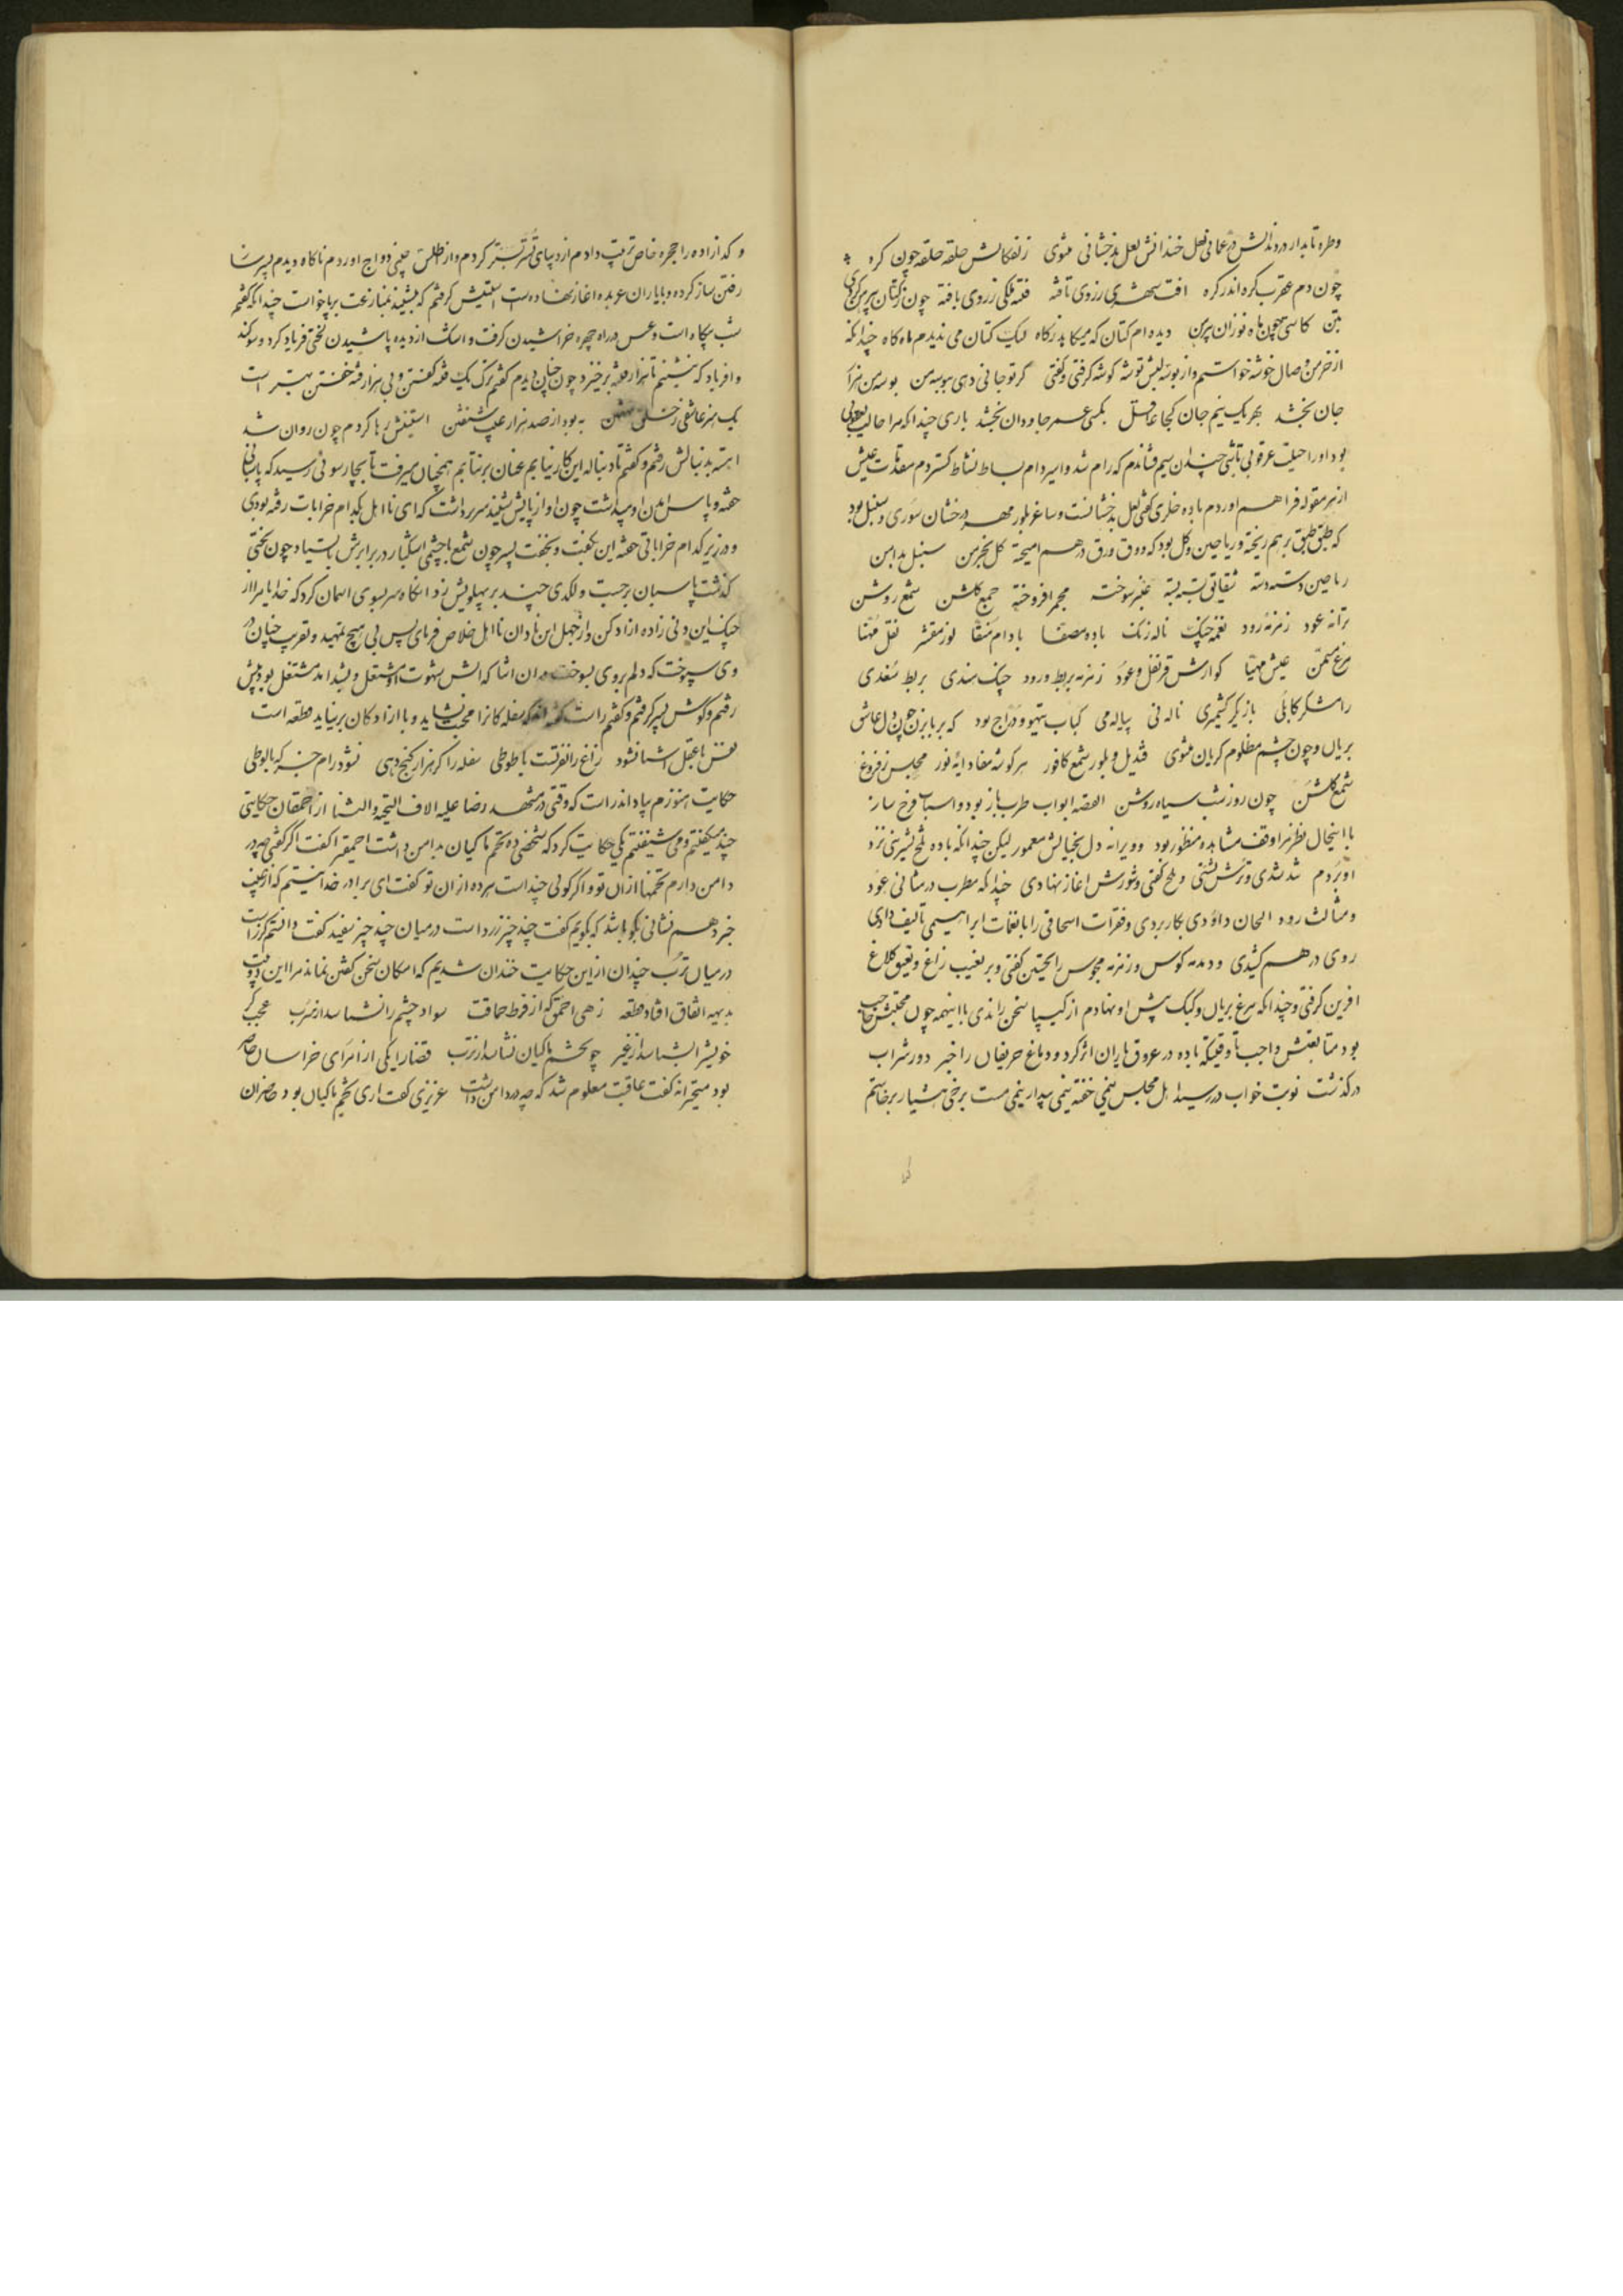 وطره تابدار دردندانش در عمانی لعل خندانش لعل بدخشانی مثنوی زلفکانش حلقه حلقه چون کره
چون دم عقرب کره اندر کره افت شهری رزوی تافته فتنه ملکی زروی بافته چون زکتان پیرهن کردی
بتن کاستی همچون ماه نو زان پیرهن دیده ام کتان که میکاهد زماه لیک کتان می ندیدم ماه کاه چندانکه
از خرمن وصال خوشه خواستیم واز بوسه لبش توشه کوشه کرفتی وکفتی کر تو جانی دهی ببوسه من بوسه من ترا
جان بخشد بهر یک نیم جان کجا عاقل بکسی عمر جاودان بخشد باری چندانکه مرا حالت یعقوبی
بود او را حیلت عرقوبی تا شبی چندان سیم فشاندم که رام شد واسیر دام بساط نشاط کستردم معدات عیش
از هر مقوله فراهم اوردم باده خلری کفتی لعل بدخشانست وساغر بلور مهر درخشان سوری وسنبل بود
که طبق طبق برهم ریخته وریاحین وکل بود که ورق ورق درهم امیخته کل بخرمن سنبل بدامن
ریاحین دسته دسته شقایق بسته بسته عنبر سوخته مجمر افروخته جمع کلشن شمع روشن
ترانه عود زمزمه رود نغمه چنک ناله زنک باده مصفا بادام منقا لوز مقشر نقل مهنا
مرغ مسمن عیش مهیا کوارش قرنفل وعود زمزمه بربط ورود چنک سندی بربط سغدی
رامشکر کابلی بازیکر کشمیری ناله نی پیاله می کباب تیهو ودراج بود که بر بابزن چون دل عاشق
بریان وچون چشم مظلوم کریان مثنوی قندیل وبلور شمع کافور هر کوشه نهاده ایه نور مجلس ز فروغ
شمع کلشن چون روز شب سیاه روشن القصه ابواب طرب باز بود واسباب فرح ساز
با اینحال نظر مرا وقف مشاهده منظور بود وویرانه دل بخیالش معمور لیکن چندانکه باده تلخ بشیرینی نزد
او بردم تند شدی وترش نشستی وتلخ کفتی وشورش اغاز نهادی چندانکه مطرب در مثانی عود
ومثالث رود الحان داودی بکار بردی ونقرات اسحاقی را با نغمات ابراهیمی تالیف دادی
روی درهم کشیدی ودمدمه کوس وزمزمه مجوس را تحسین کفتی وبر نعیب زاغ ونعیق کلاغ
افرین کرفتی وچندانکه مرغ بریان وکبک پیش او نهادم از کیپا سخن راندی با اینهمه چون محبتش حاجب
بود متابعتش واجب تا وقتیکه باده در عروق یاران اثر کرد ودماغ حریفان را خبر دور شراب
درکذشت نوبت خواب دررسید اهل مجلس نیمی خفته نیمی بیدار نیمی مست برخی هشیار برخاستم
وکدا زاده را حجره خاص ترتیب دادم از دیبای تستر بستر کردم واز اطلس چینی دواج اوردم ناکاه دیدم پسر ساز
رفتن ساز کرده وبا یاران عربده اغاز نهاده دست استینش کرفتم که بنشیند بمنازعت برپا خواست چندانکه کفتم
شب بیکاه است وعسس در راه چهره خراشیدن کرفت واشک از دیده پاشیدن لختی فریاد کرد وسوکند
وافریاد که ننشینم تا هزار فتنه برخیزد چون چنان دیدم کفتم ترک یک فتنه کفتن وبی هزار فتنه خفتن بهتر است
یک هنر عاشقی ز خلق نهفتن به بود از صد هزار عیب شنفتن استینش رها کردم چون روان شد
اهسته بدنبالش رفتم وکفتم تا دنباله این کار نیابم عنان برنتابم همچنان میرفت تا بچارسوئی رسید که پاسبانی
خفته وپاس امدن او میداشت چون اواز پایش شنید سر برداشت که ای نااهل بکدام خرابات رفته بودی
ودر زیر کدام خراباتی خفته این بکفت وبخفت پسر چون شمع با چشمی اشکبار در برابرش بایستاد چون لختی
کذشت پاسبان برجست ولکدی چند بر پهلویش زد انکاه سر بسوی اسمان کرد که خدایا مرا از
چنک این دنی زاده ازاد کن واز جهل این نادان نااهل خلاص فرمای پس بی هیچ تمهید وتقریب چنان در
وی سپوخت که دلم بروی بسوخت در ان اثنا که اتش شهوت او مشتعل وبشد امد مشتغل بود پیش
رفتم وکوش پسر کرفتم وکفتم راست کفته اند که سفله کانرا محبت نشاید وبا ازادکان برنیاید قطعه است
نفس با عقل اشنا نشود زاغ را نفرتست با طوطی سفله را کر هزار کنج دهی نشود رام جز که با لوطی
حکایت هنوزم بیاد اندر است که وقتی در مشهد رضا علیه الاف التحیه والثنا از احمقان حکایتی
چند میکفتیم ومی شنفتیم یکی حکایت کرد که شخصی ده تخم ماکیان بدامن داشت احمقیرا کفت اکر کفتی چه در
دامن دارم تخمها از ان تو واکر کوئی چند است هر ده از ان تو کفت ای برادر خدا نیستم که از غیب
خبر دهم نشانی بکو باشد که بکویم کفت چند چیز زرد است در میان چند چیز سفید کفت دانستم کزر است
در میان ترب چندان از این حکایت خندان شدیم که امکان سخن کفتن نماند مرا این دو بیت
بدیهه اتفاق افتاد قطعه زهی احمق که از فرط حماقت سواد چشم را نشناسد از سرب عجب کر
خویش را بشناسد از غیر چو تخم ماکیان نشناسد از ترب قضا را یکی از امرای خراسان حاضر
بود متحیرانه کفت عاقبت معلوم شد که چه در دامن داشت عزیزی کفت اری تخم ماکیان بود حاضران